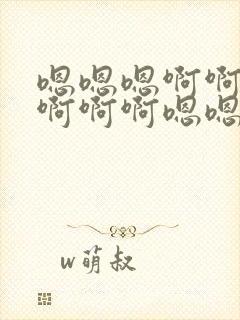 嗯嗯嗯啊啊
啊啊啊嗯嗯
w萌叔